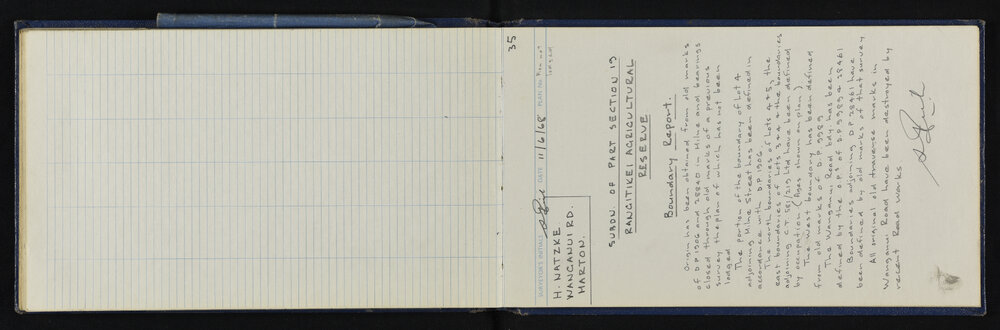 35
SURVEYOR'S INITIALS DATE 11/6/68 PLAN NO
H. NATZKE
WANGANUI RD.
MARTON.
SUBDN. OF PART SECTION 19
RANGITIKEI AGRICULTURAL
RESERVE
Boundary Report.
Origin has been obtained from old marks
of D.P. 1906 and 28840 in Milne and bearings
closed through old marks of a previous
survey the plan of which has not been
lodged
The portion of the boundary of Lot 4
adjoining Milne Street has been defined in
accordance with D.P. 1906
The north boundaries of Lots 4 & 5, the
east boundaries of Lots 3 & 4 & the boundaries
adjoining C.T. 581/213 Ltd have been defined
by occupation (Ages shown on plan)
The West boundary has been defined
from old marks of D.P. 9989
The Wanganui Road bdy has been
defined by the O.P's of D.P. 9989 & 28461
Boundaries adjoining DP 28461 have
been defined by old marks of that survey
All original old traverse marks in
Wanganui Road have been destroyed by
recent Road works